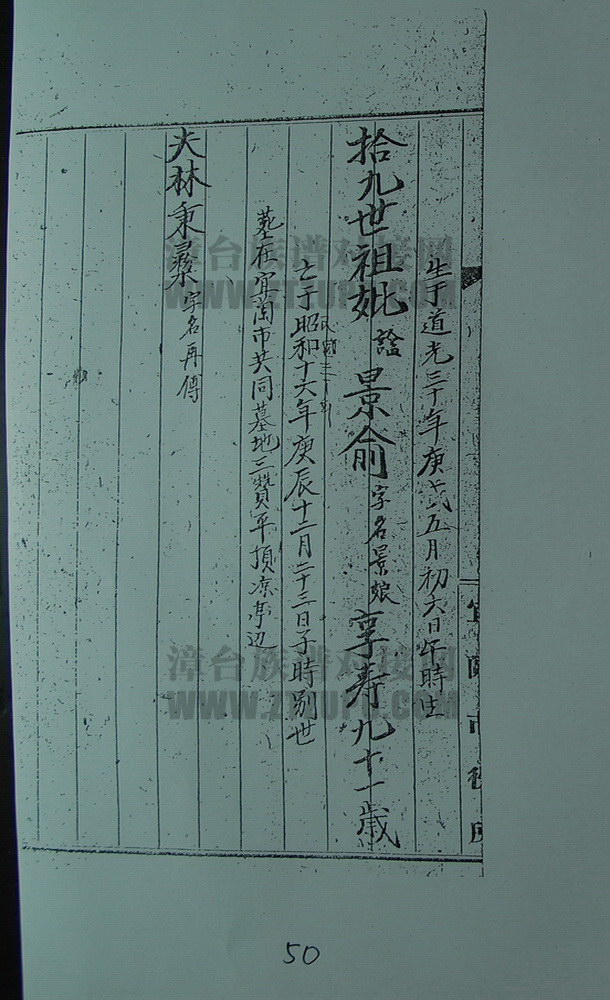 宜蘭市
生于道光三十年庚戌五月初六日午時生
拾九世祖妣諡景俞字名景娘享寿九十一歲
亡于昭和十六年庚辰十二月二十三日子時别世
民國三十
墓在宜蘭市共同墓地三贊平頂凉亭辺
大林秉彝字名再傳
漳台族谱对接网
WWW.ZTZUPU.COM
漳台族谱对接网
WWW.ZTZUPU.COM
50